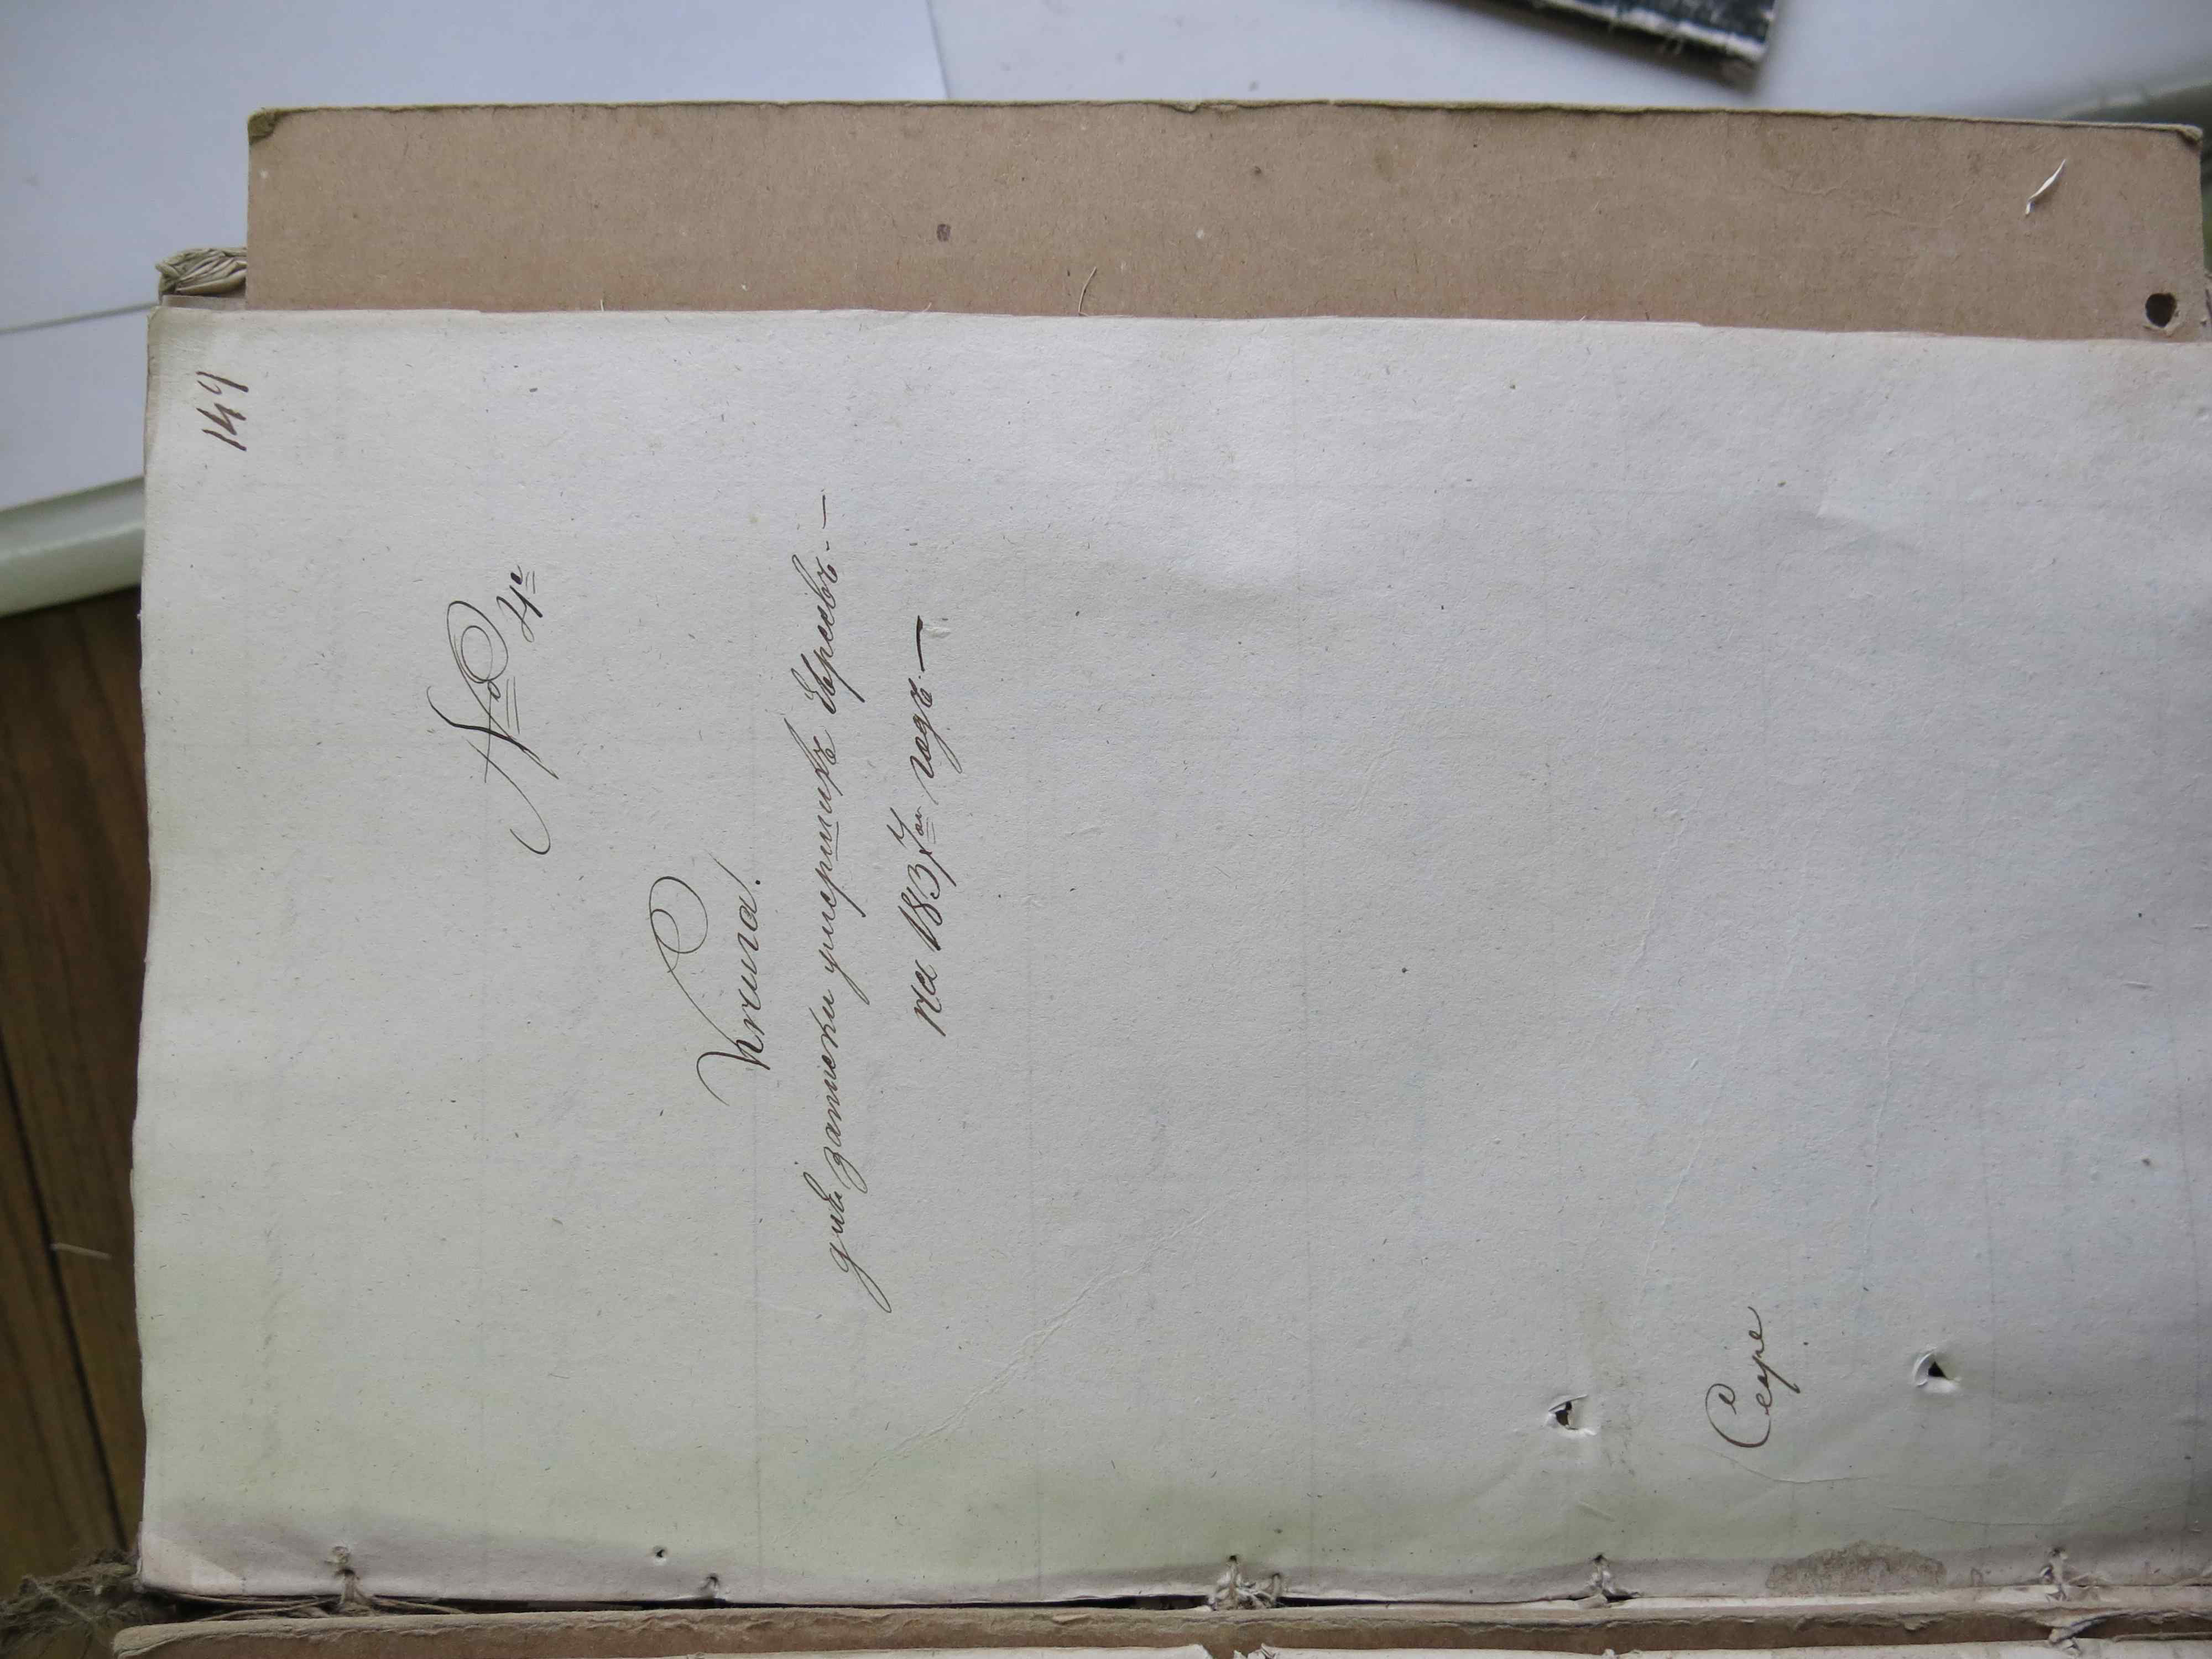 149
№ 4й
Книга.
для записки умершихъ Евреевъ.—
на 1837ой годъ.—